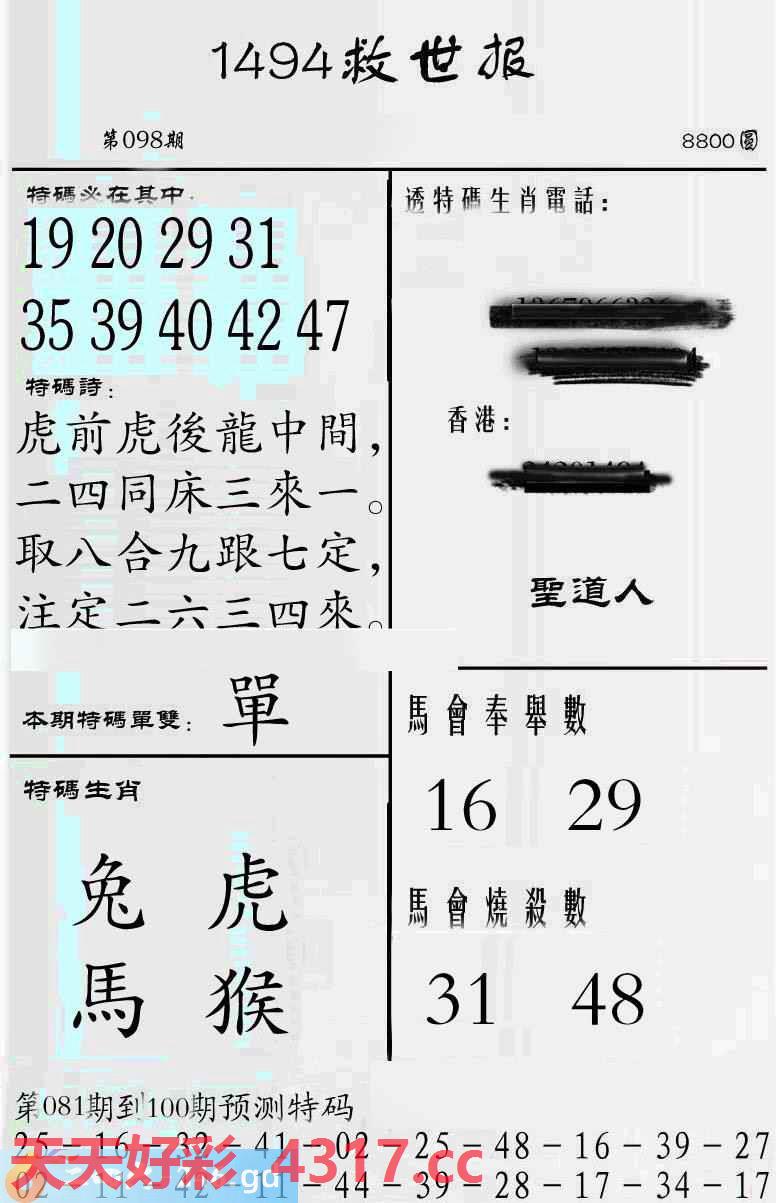 1494救世报
第098期
8800圓
特碼必在其中:
19 20 29 31
35 39 40 42 47
特碼詩:
虎前虎後龍中間,
二四同床三來一。
取八合九跟七定,
注定二六三四來。
本期特碼單雙: 單
特碼生肖
兔 虎
馬 猴
透特碼生肖電話:
香港:
聖道人
馬會奉舉數
16 29
馬會燒殺數
31 48
第081期到100期预测特码
25-16-32-41-02-25-48-16-39-27
02-11-42-11-44-39-28-17-34-17
天天好彩 4317.cc